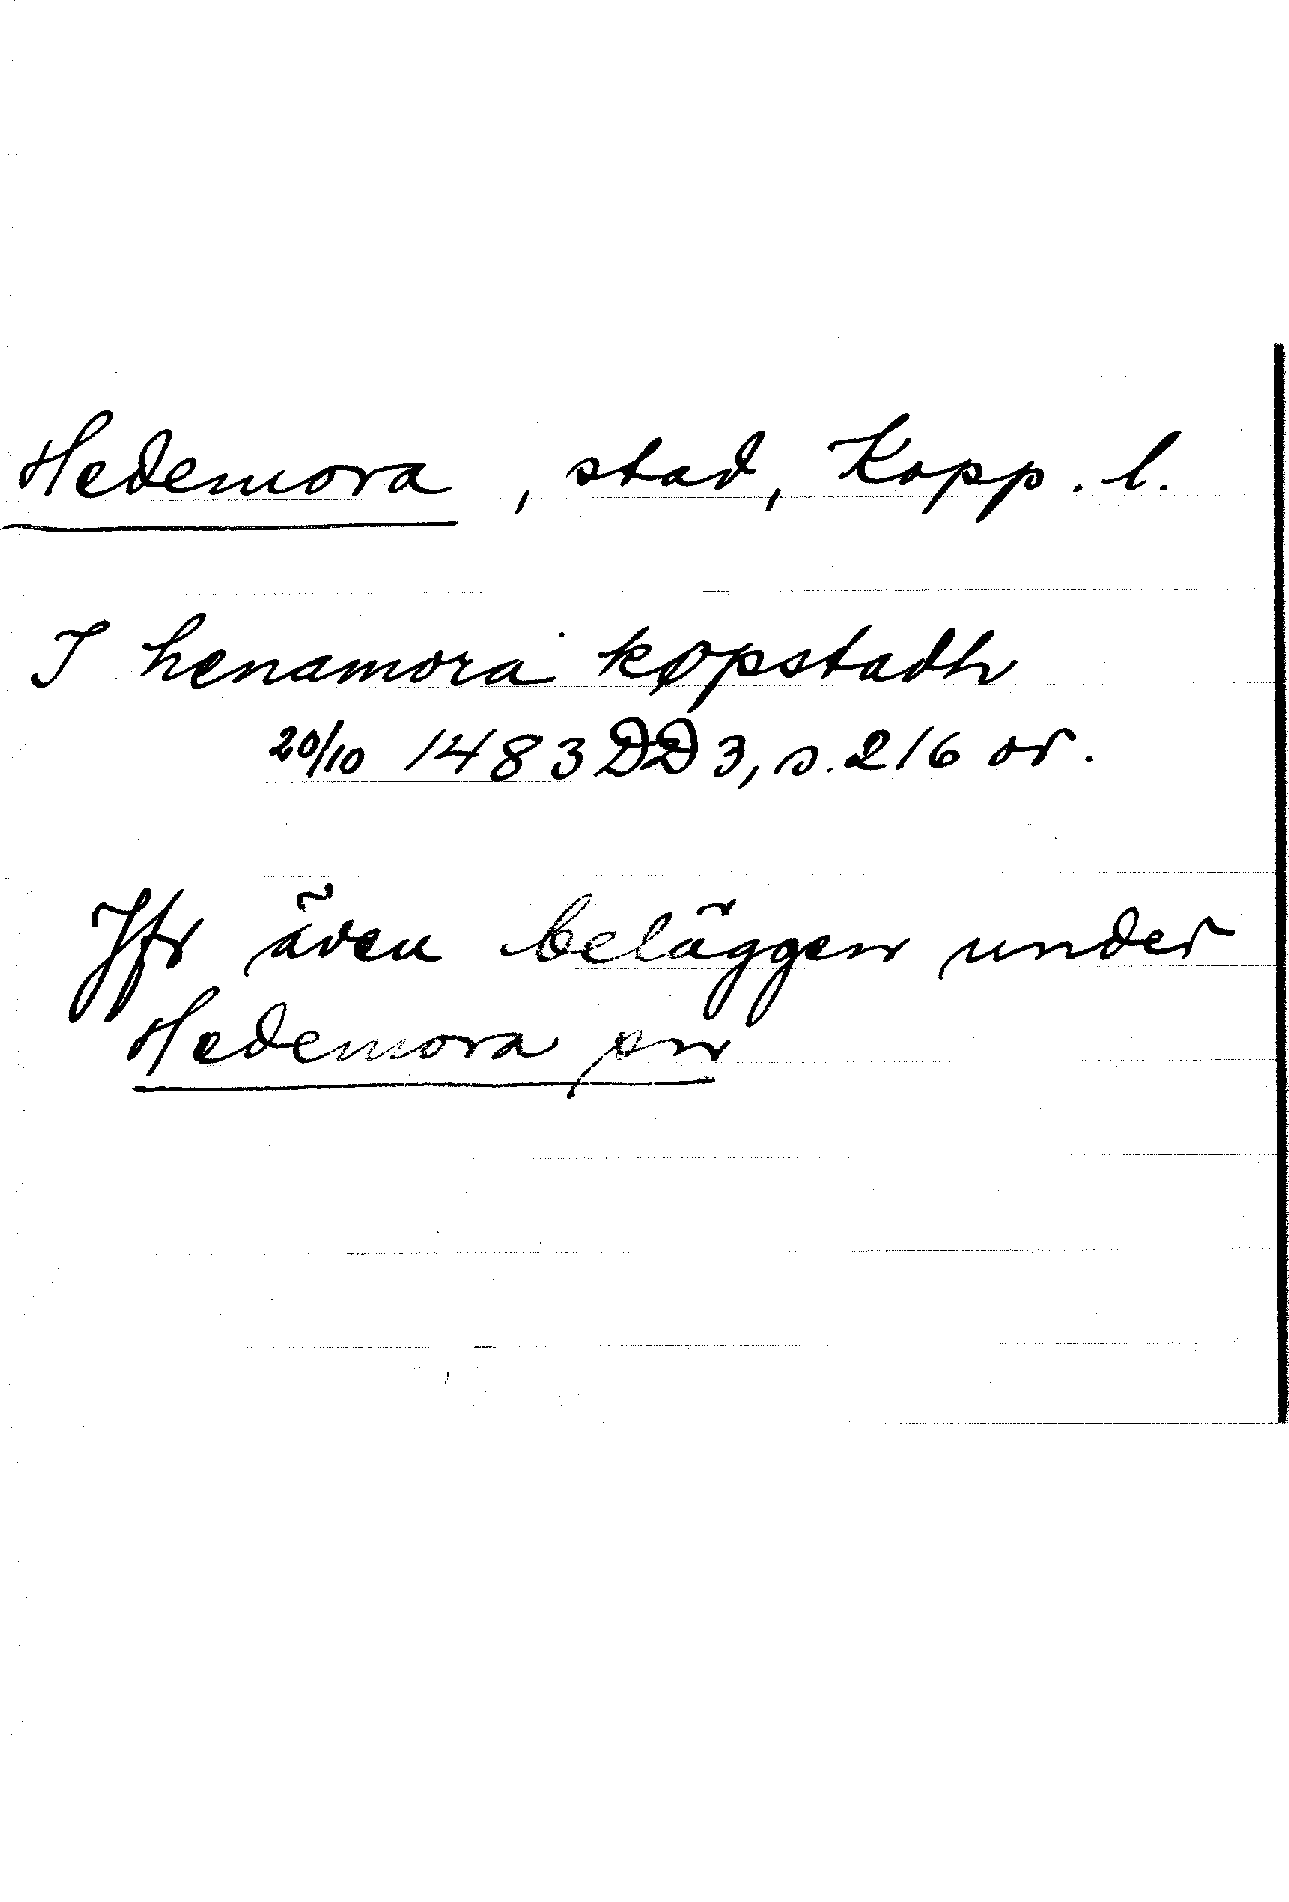 Hedemora, stad, Kopp. l.
I henamora køpstadh
20/10 1483 DD 3, s. 216 or.
Jfr även beläggen under
Hedemora sn